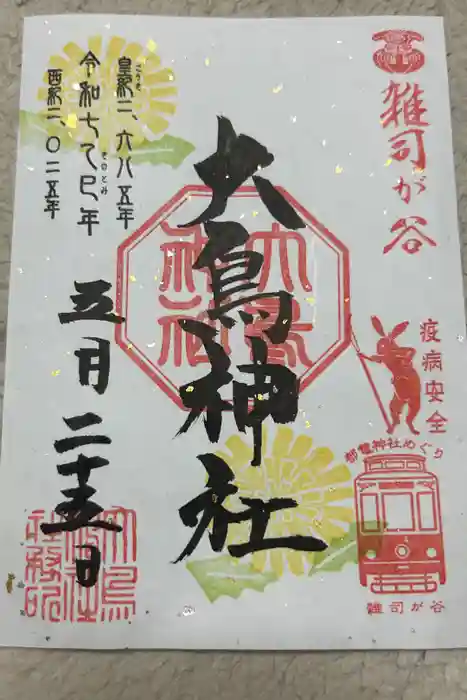 雑司が谷
疫病安全
都電神社めぐり
雑司が谷
大鳥神社
大鳥
神社
皇紀二、六八五年
こうき
令和七乙巳年
きのとみ
西紀二、〇二五年
五月二十五日